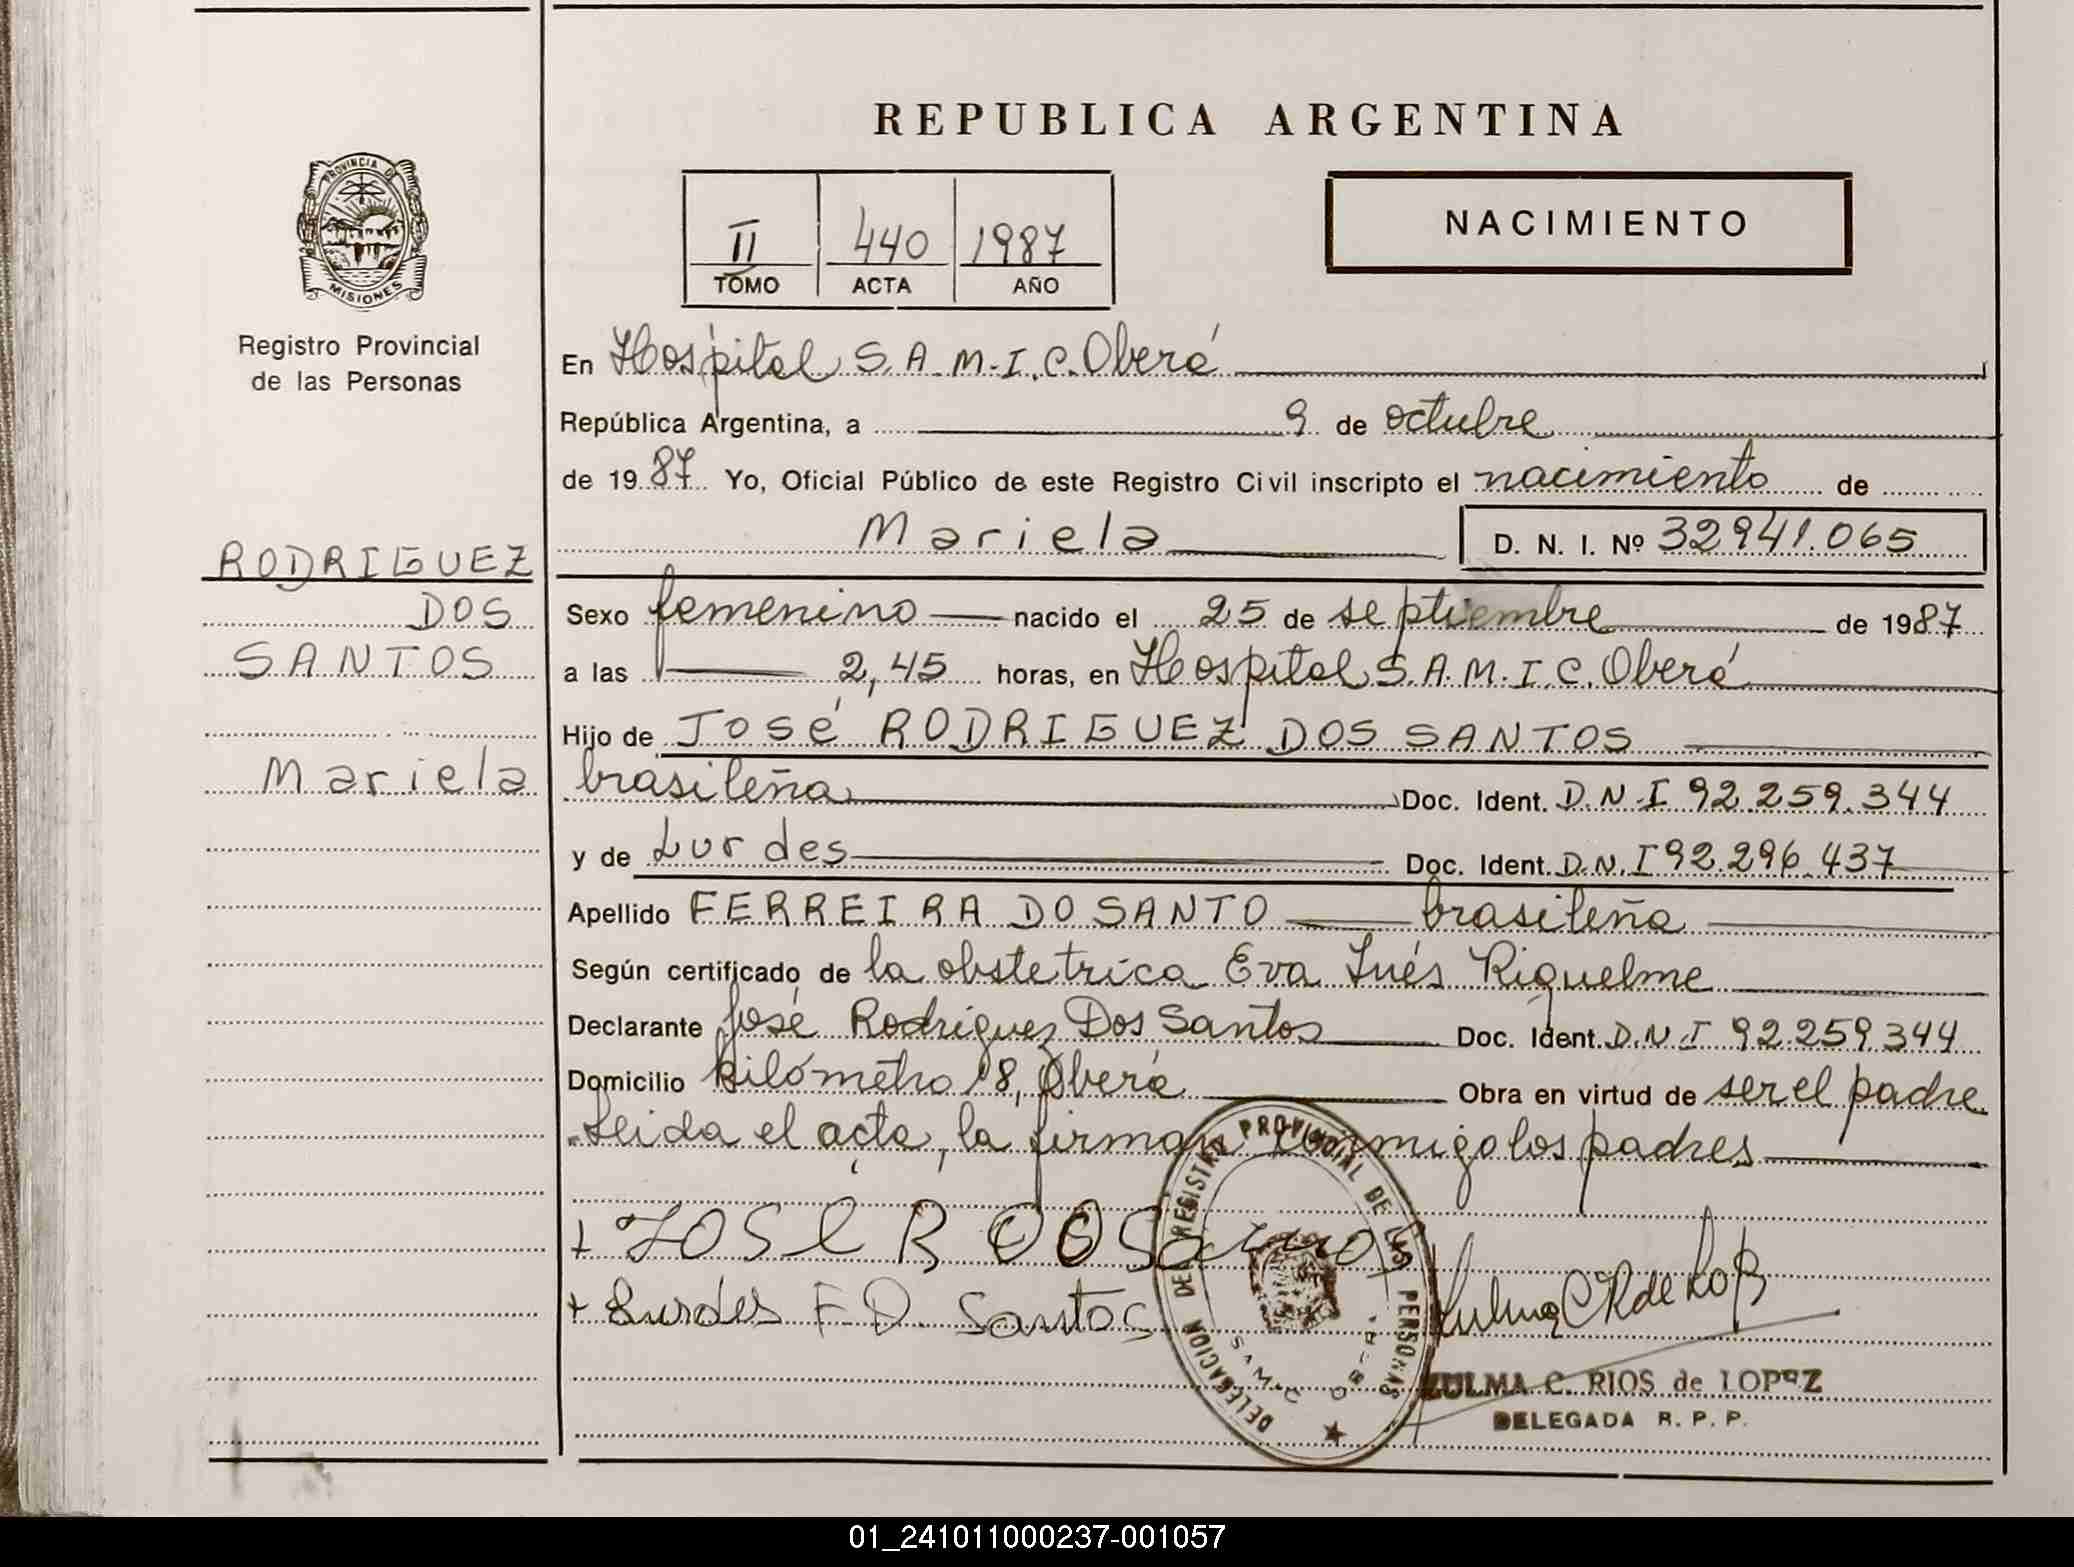 REPUBLICA ARGENTINA
PROVINCIA DE
MISIONES
Registro Provincial
de las Personas
II 440 1987
TOMO ACTA AÑO
NACIMIENTO
RODRIGUEZ
DOS
SANTOS
Mariela
En Hospital S.A.M.I.C. Oberá
República Argentina, a 9 de octubre
de 1987 Yo, Oficial Público de este Registro Civil inscripto el nacimiento de
Mariela D. N. I. Nº 32941.065
Sexo femenino nacido el 25 de septiembre de 1987
a las 2,45 horas, en Hospital S.A.M.I.C. Oberá
Hijo de José RODRIGUEZ DOS SANTOS
brasileña Doc. Ident. D.N.I 92.259.344
y de Lurdes Doc. Ident. D.N.I 92.296.437
Apellido FERREIRA DO SANTO brasileña
Según certificado de la obstetrica Eva Inés Riquelme
Declarante José Rodriguez Dos Santos Doc. Ident. D.N.I 92.259.344
Domicilio kilómetro 18, Oberá Obra en virtud de ser el padre
Leida el acta, la firman conmigo los padres
+ JOSE R DOS Santos
+ Lurdes F. D. Santos
Zulma C R de Lopez
DELEGACION DEL REGISTRO PROVINCIAL DE LAS PERSONAS
ZULMA C. RIOS de LOPEZ
DELEGADA R. P. P.
01_241011000237-001057